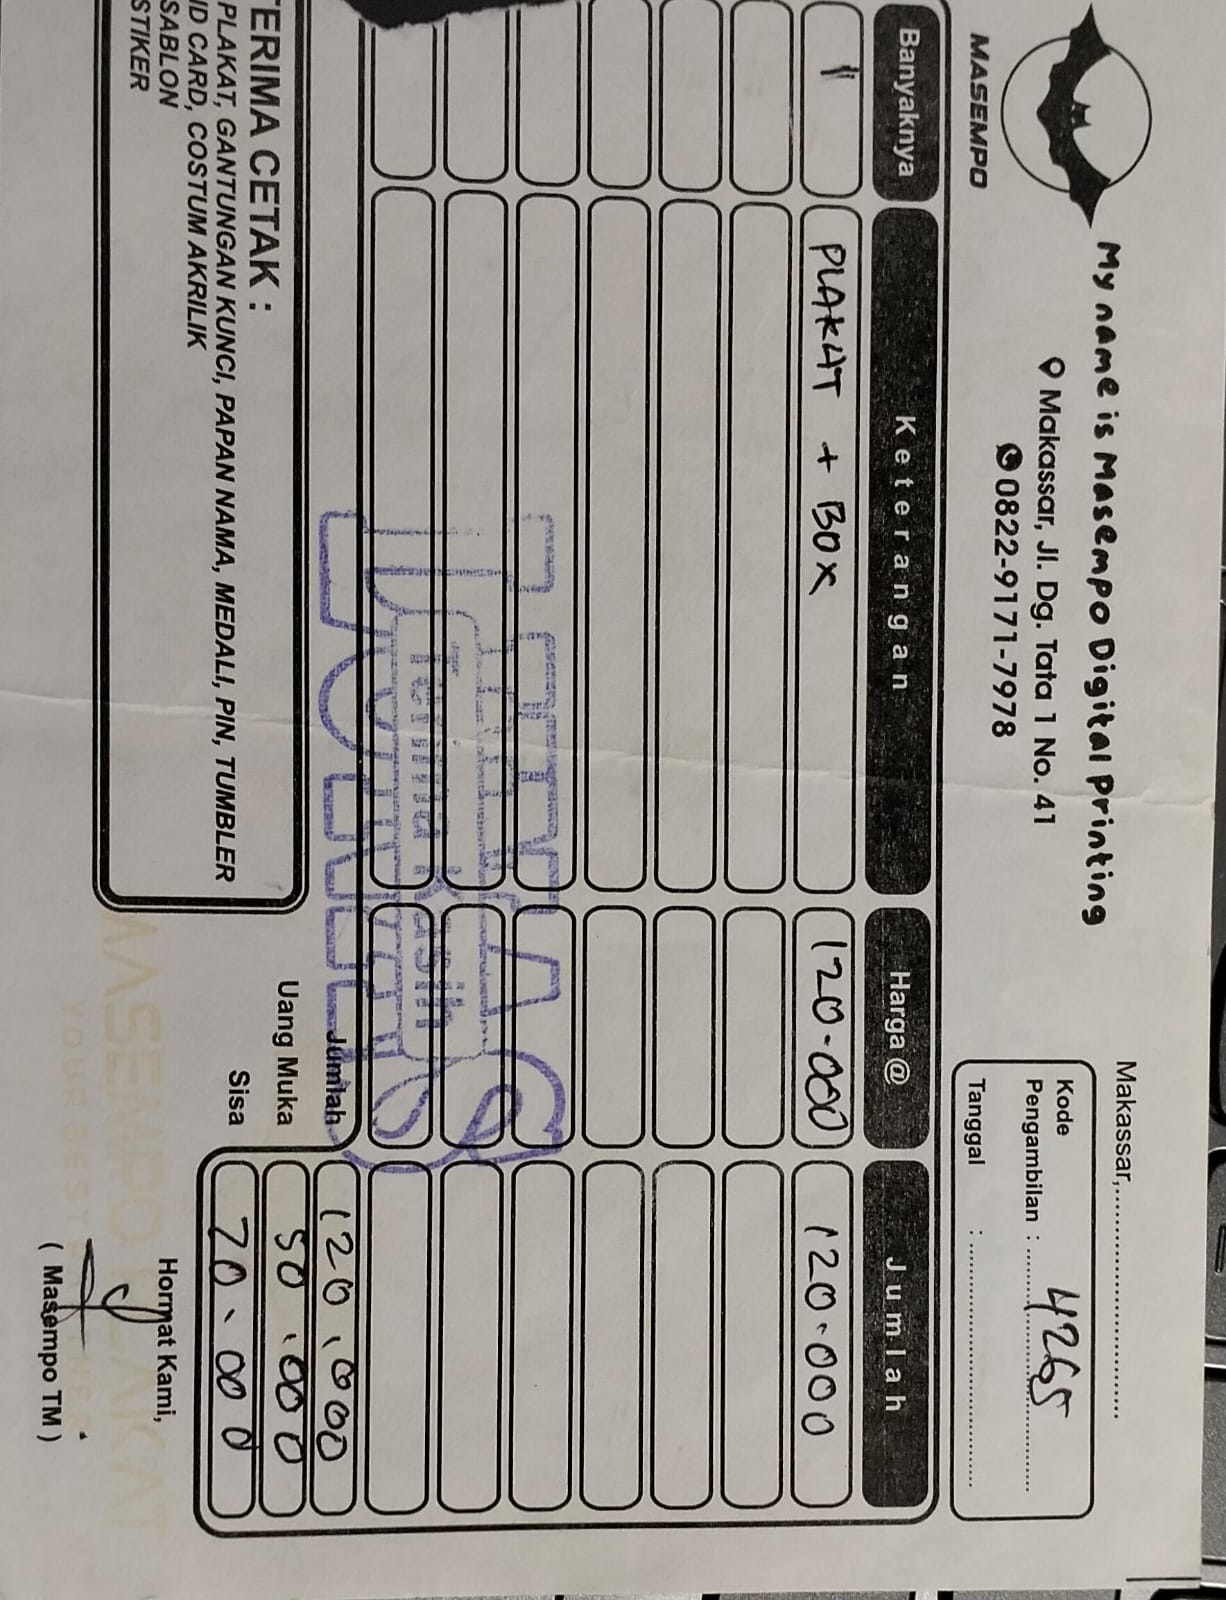 My name is Masempo Digital Printing
Makassar, Jl. Dg. Tata 1 No. 41
0822-9171-7978
MASEMPO
Makassar,..............................
Kode
Pengambilan : 4265
Tanggal :
Banyaknya Keterangan Harga @ Jumlah
1 PLAKAT + BOX 120.000 120.000
LUNAS
Terima Kasih
Jumlah 120.000
Uang Muka 50.000
Sisa 70.000
TERIMA CETAK :
PLAKAT, GANTUNGAN KUNCI, PAPAN NAMA, MEDALI, PIN, TUMBLER
ID CARD, COSTUM AKRILIK
SABLON
STIKER
Hormat Kami,
MASEMPO PLAKAT
YOUR BEST PARTNER
( Masempo TM )